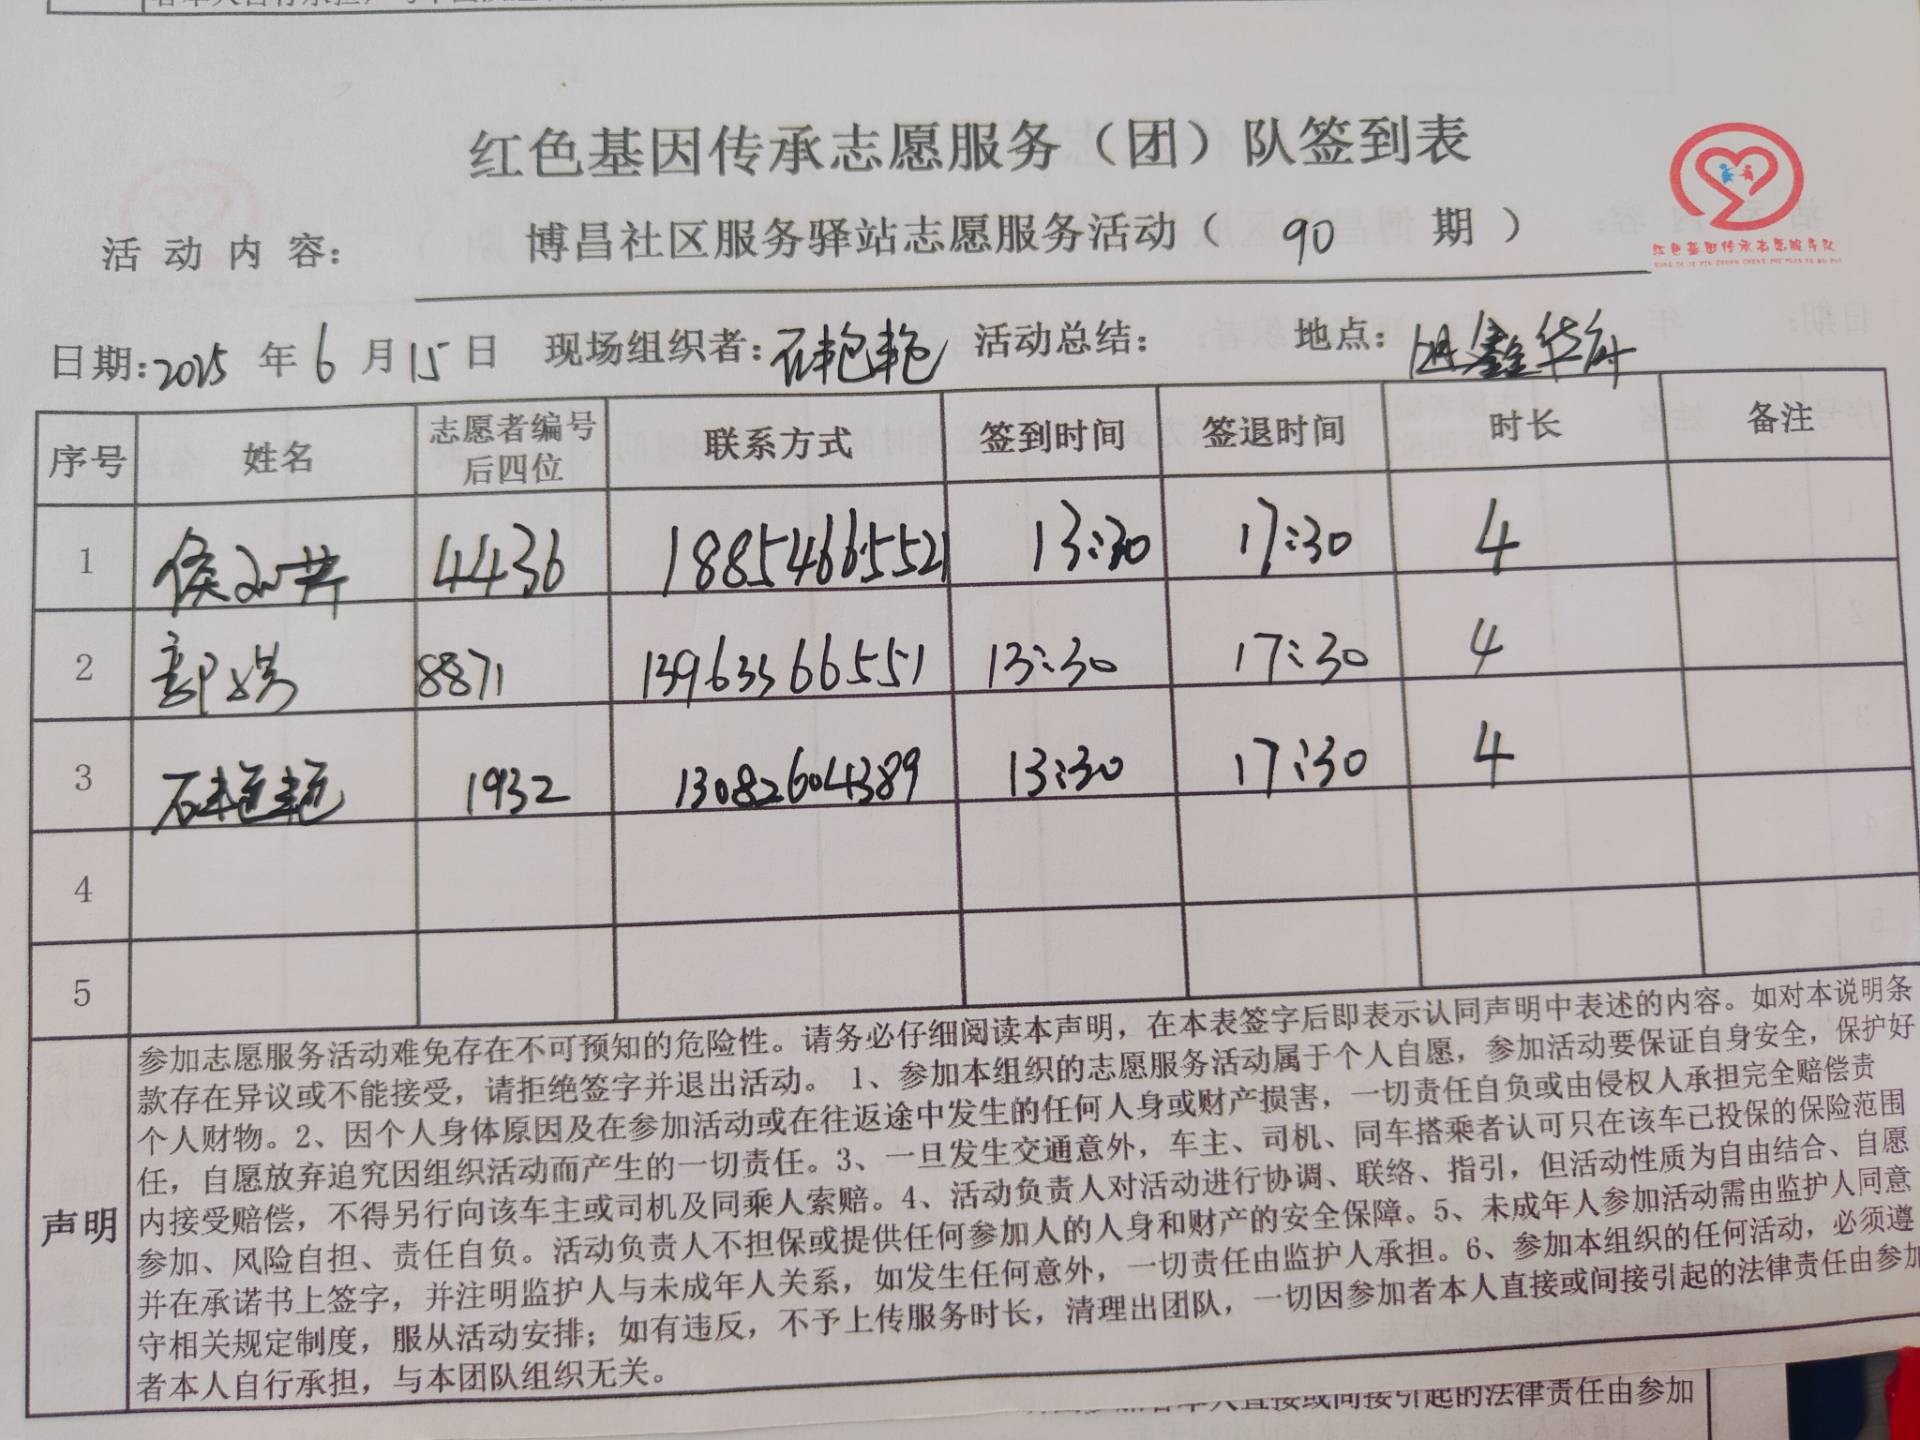 红色基因传承志愿服务（团）队签到表
活动内容： 博昌社区服务驿站志愿服务活动（ 90 期 ）
红色基因传承志愿服务队
日期:2025 年 6 月 15 日 现场组织者:石艳艳 活动总结： 地点: 鑫华府
序号 姓名 志愿者编号后四位 联系方式 签到时间 签退时间 时长 备注
1 侯 4436 18854665521 13:30 17:30 4
2 郭 8871 13963566551 13:30 17:30 4
3 石艳艳 1932 13082604389 13:30 17:30 4
4
5
声明
参加志愿服务活动难免存在不可预知的危险性。请务必仔细阅读本声明，在本表签字后即表示认同声明中表述的内容。如对本说明条
款存在异议或不能接受，请拒绝签字并退出活动。 1、参加本组织的志愿服务活动属于个人自愿，参加活动要保证自身安全，保护好
个人财物。2、因个人身体原因及在参加活动或在往返途中发生的任何人身或财产损害，一切责任自负或由侵权人承担完全赔偿责
任，自愿放弃追究因组织活动而产生的一切责任。3、一旦发生交通意外，车主、司机、同车搭乘者认可只在该车已投保的保险范围
内接受赔偿，不得另行向该车主或司机及同乘人索赔。4、活动负责人对活动进行协调、联络、指引，但活动性质为自由结合、自愿
参加、风险自担、责任自负。活动负责人不担保或提供任何参加人的人身和财产的安全保障。5、未成年人参加活动需由监护人同意
并在承诺书上签字，并注明监护人与未成年人关系，如发生任何意外，一切责任由监护人承担。6、参加本组织的任何活动，必须遵
守相关规定制度，服从活动安排；如有违反，不予上传服务时长，清理出团队，一切因参加者本人直接或间接引起的法律责任由参加
者本人自行承担，与本团队组织无关。
本人直接或间接引起的法律责任由参加